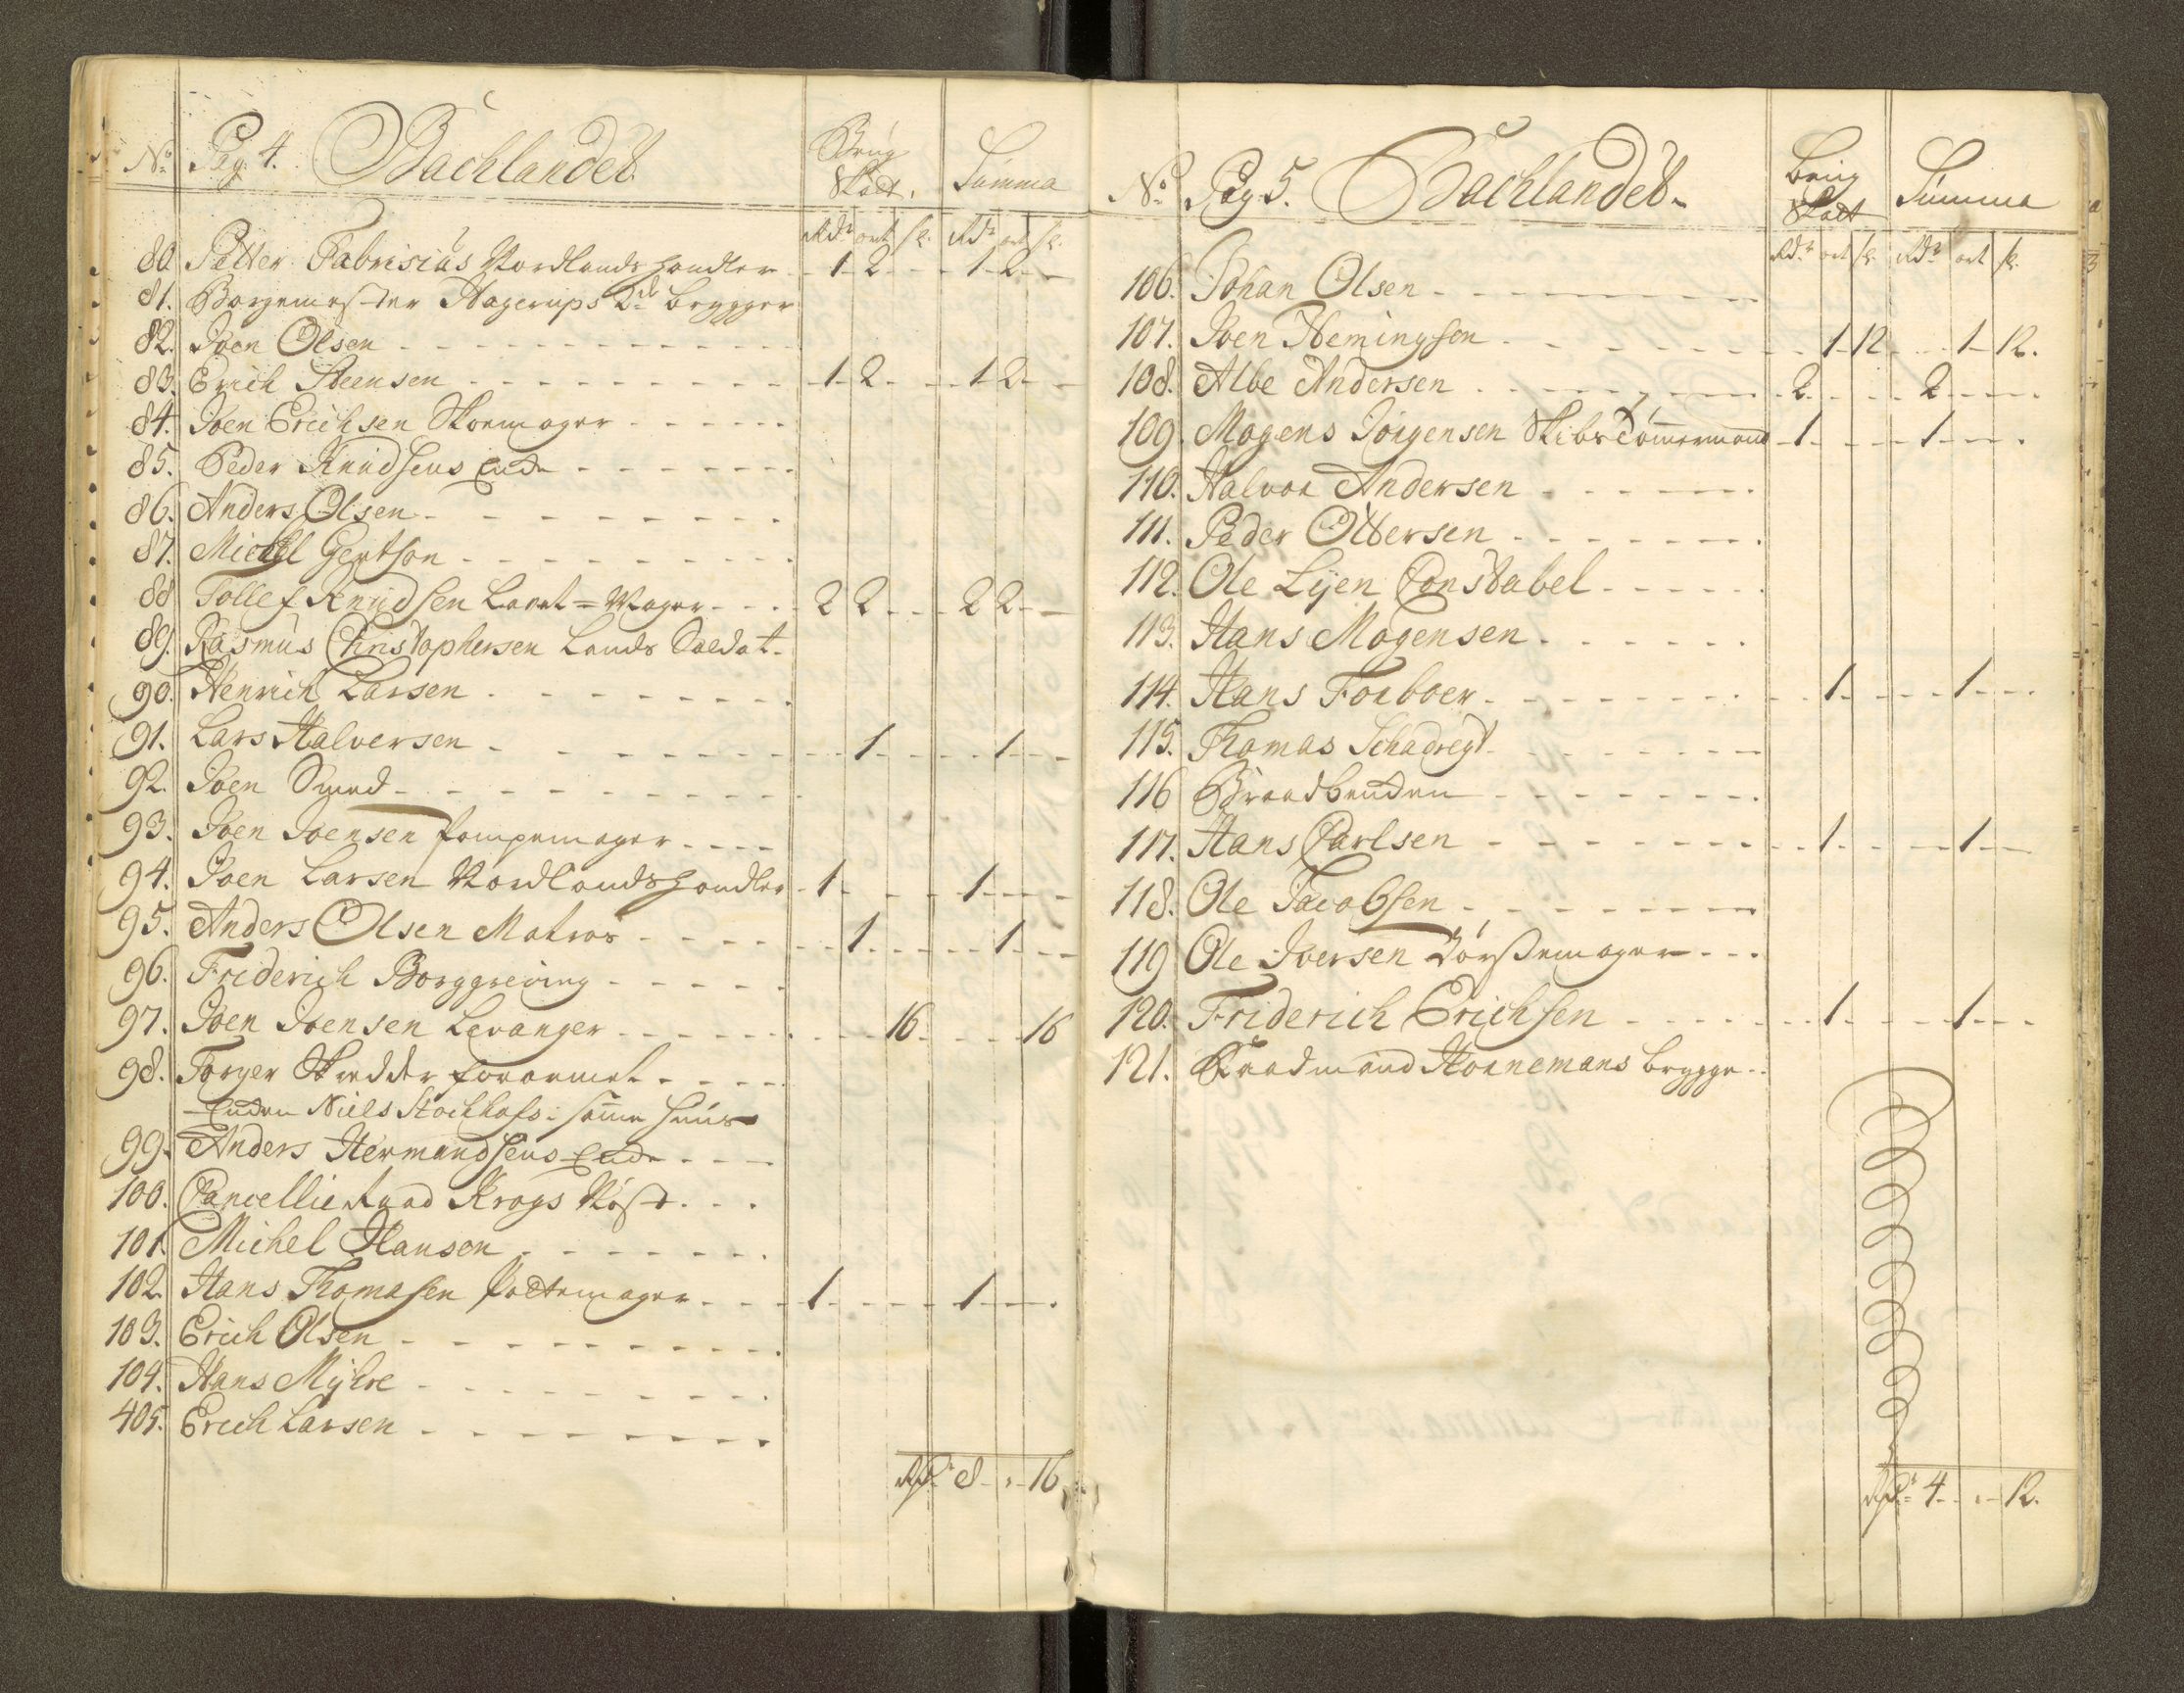 No Pag. 4. Bachlandet. Brug Skatt. Summa
Rdr ort sk. Rdr ort sk.
80 Petter Fabrisius Nordlands handler - 1 - 2 - - - 1 - 2 - -
81. Borgemester Hagerups brygger
82. Joen Olsen
83. Erich Steensen - 1 - 2 - - - 1 - 2 - -
84. Joen Erichsen Skoemager
85. Peder Knudsens Encke
86. Anders Olsen
87. Michel Gertson
88 Tollef Knudsen - 2 2 - - - 2 2 - -
89. Rasmus Christophersen Lands Soldat
90. Henrich Larsen
91. Lars Halversen - - 1 - - - - 1 - -
92. Joen Smed
93. Joen Joensen Pompemager
94. Joen Larsen Nordlandshandler - 1 - - - - 1 - - -
95. Anders Olsen Matros - - 1 - - - - 1 - -
96. Friderich Borggreving
97. Joen Joensen Levanger - - - 16 - - - 16
98. Torger Skredder forarmet
Encken Niels Stochhofs i samme Huus
99. Anders Hermandsens Encke
100. Cancellie Raad Krogs Nøst
101. Michel Hansen
102. Hans Thomasen Pottemager - 1 - - - - 1 - - -
103. Erich Olsen
104. Hans Myhre
105. Erich Larsen
Rdr 8 - " - 16
No Pag. 5. Bachlandet. Brug Skatt Summa
Rdr ort sk. Rdr ort sk.
106. Johan Olsen
107. Joen Hemingsen - - 1 - 12 - - - 1 - 12.
108. Albe Andersen - 2 - - - - 2 - - -
109. Mogens Jörgensen Skibstömmermand - 1 - - - - 1 - - -
110. Halvor Andersen
111. Peder Ottersen
112. Ole Lyen Constabel
113. Hans Mogensen
114. Hans Forboer - - 1 - - - - 1 - -
115. Thomas Schadregt
116 Braadbencken
117. Hans Carlsen - - 1 - - - - 1 - -
118. Ole Jacobsen
119 Ole Iversen Börstemager
120. Friderich Erichsen - - 1 - - - - 1 - -
121. Raadmand Hornemans brygge
Rdr 4 - " - 12.